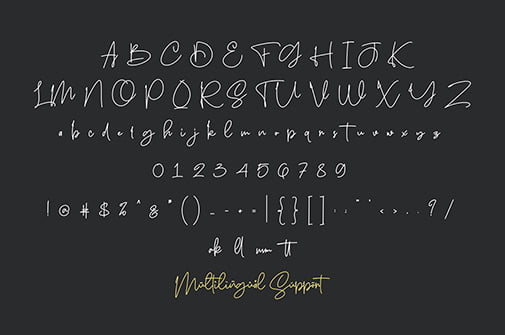 A B C D E F G H I J K
L M N O P Q R S T U V W X Y Z
a b c d e f g h i j k l m n o p q r s t u v w x y z
0 1 2 3 4 5 6 7 8 9
! @ # $ % ^ & * ( ) _ - + = | { } [ ] : ; " ' < > , . ? /
ok ll mm tt
Multilingual Support